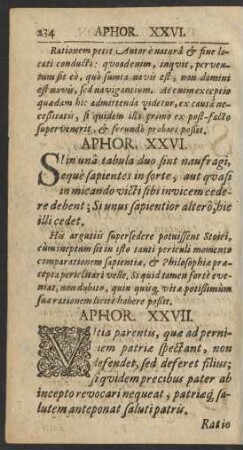 234 APHOR. XXVI.
Rationem petit Autor è naturâ & fine lo-
cati conducti: qvoadenim, inqvit, perven-
tum sit eò, quò sumta navis est; non domini
est navis, sed navigantium. At enim exceptio
quædam hîc admittenda videtur, ex causâ ne-
cessitatis, si quidem illa primò ex post-facto
supervenerit, & secundò probari possit.
APHOR. XXVI.
SI in unâ tabula duo sint naufragi,
eqvè sapientes in forte, aut qvasi
in micando victi sibi invicem cede-
re debent; Si unus sapientior alterô, hic
illi cedet.
His argutiis supersedere potuissent Stoici,
cum ineptum sit in isto tanti periculi momento
comparationem sapientiæ, & Philosophiæ præ-
cepta periclitari velle, Si quid tamen fortè eve-
niat, non dubito, quin quisq; vitæ potissimùm
suæ rationem licitè habere possit.
APHOR. XXVII.
VItia parentis, quæ ad perni-
ciem patriæ spectant, non
defendet, sed deferet filius;
siqvidem precibus pater ab
incepto revocari nequeat, patriæq; sa-
lutem anteponat saluti patris.
Ratio